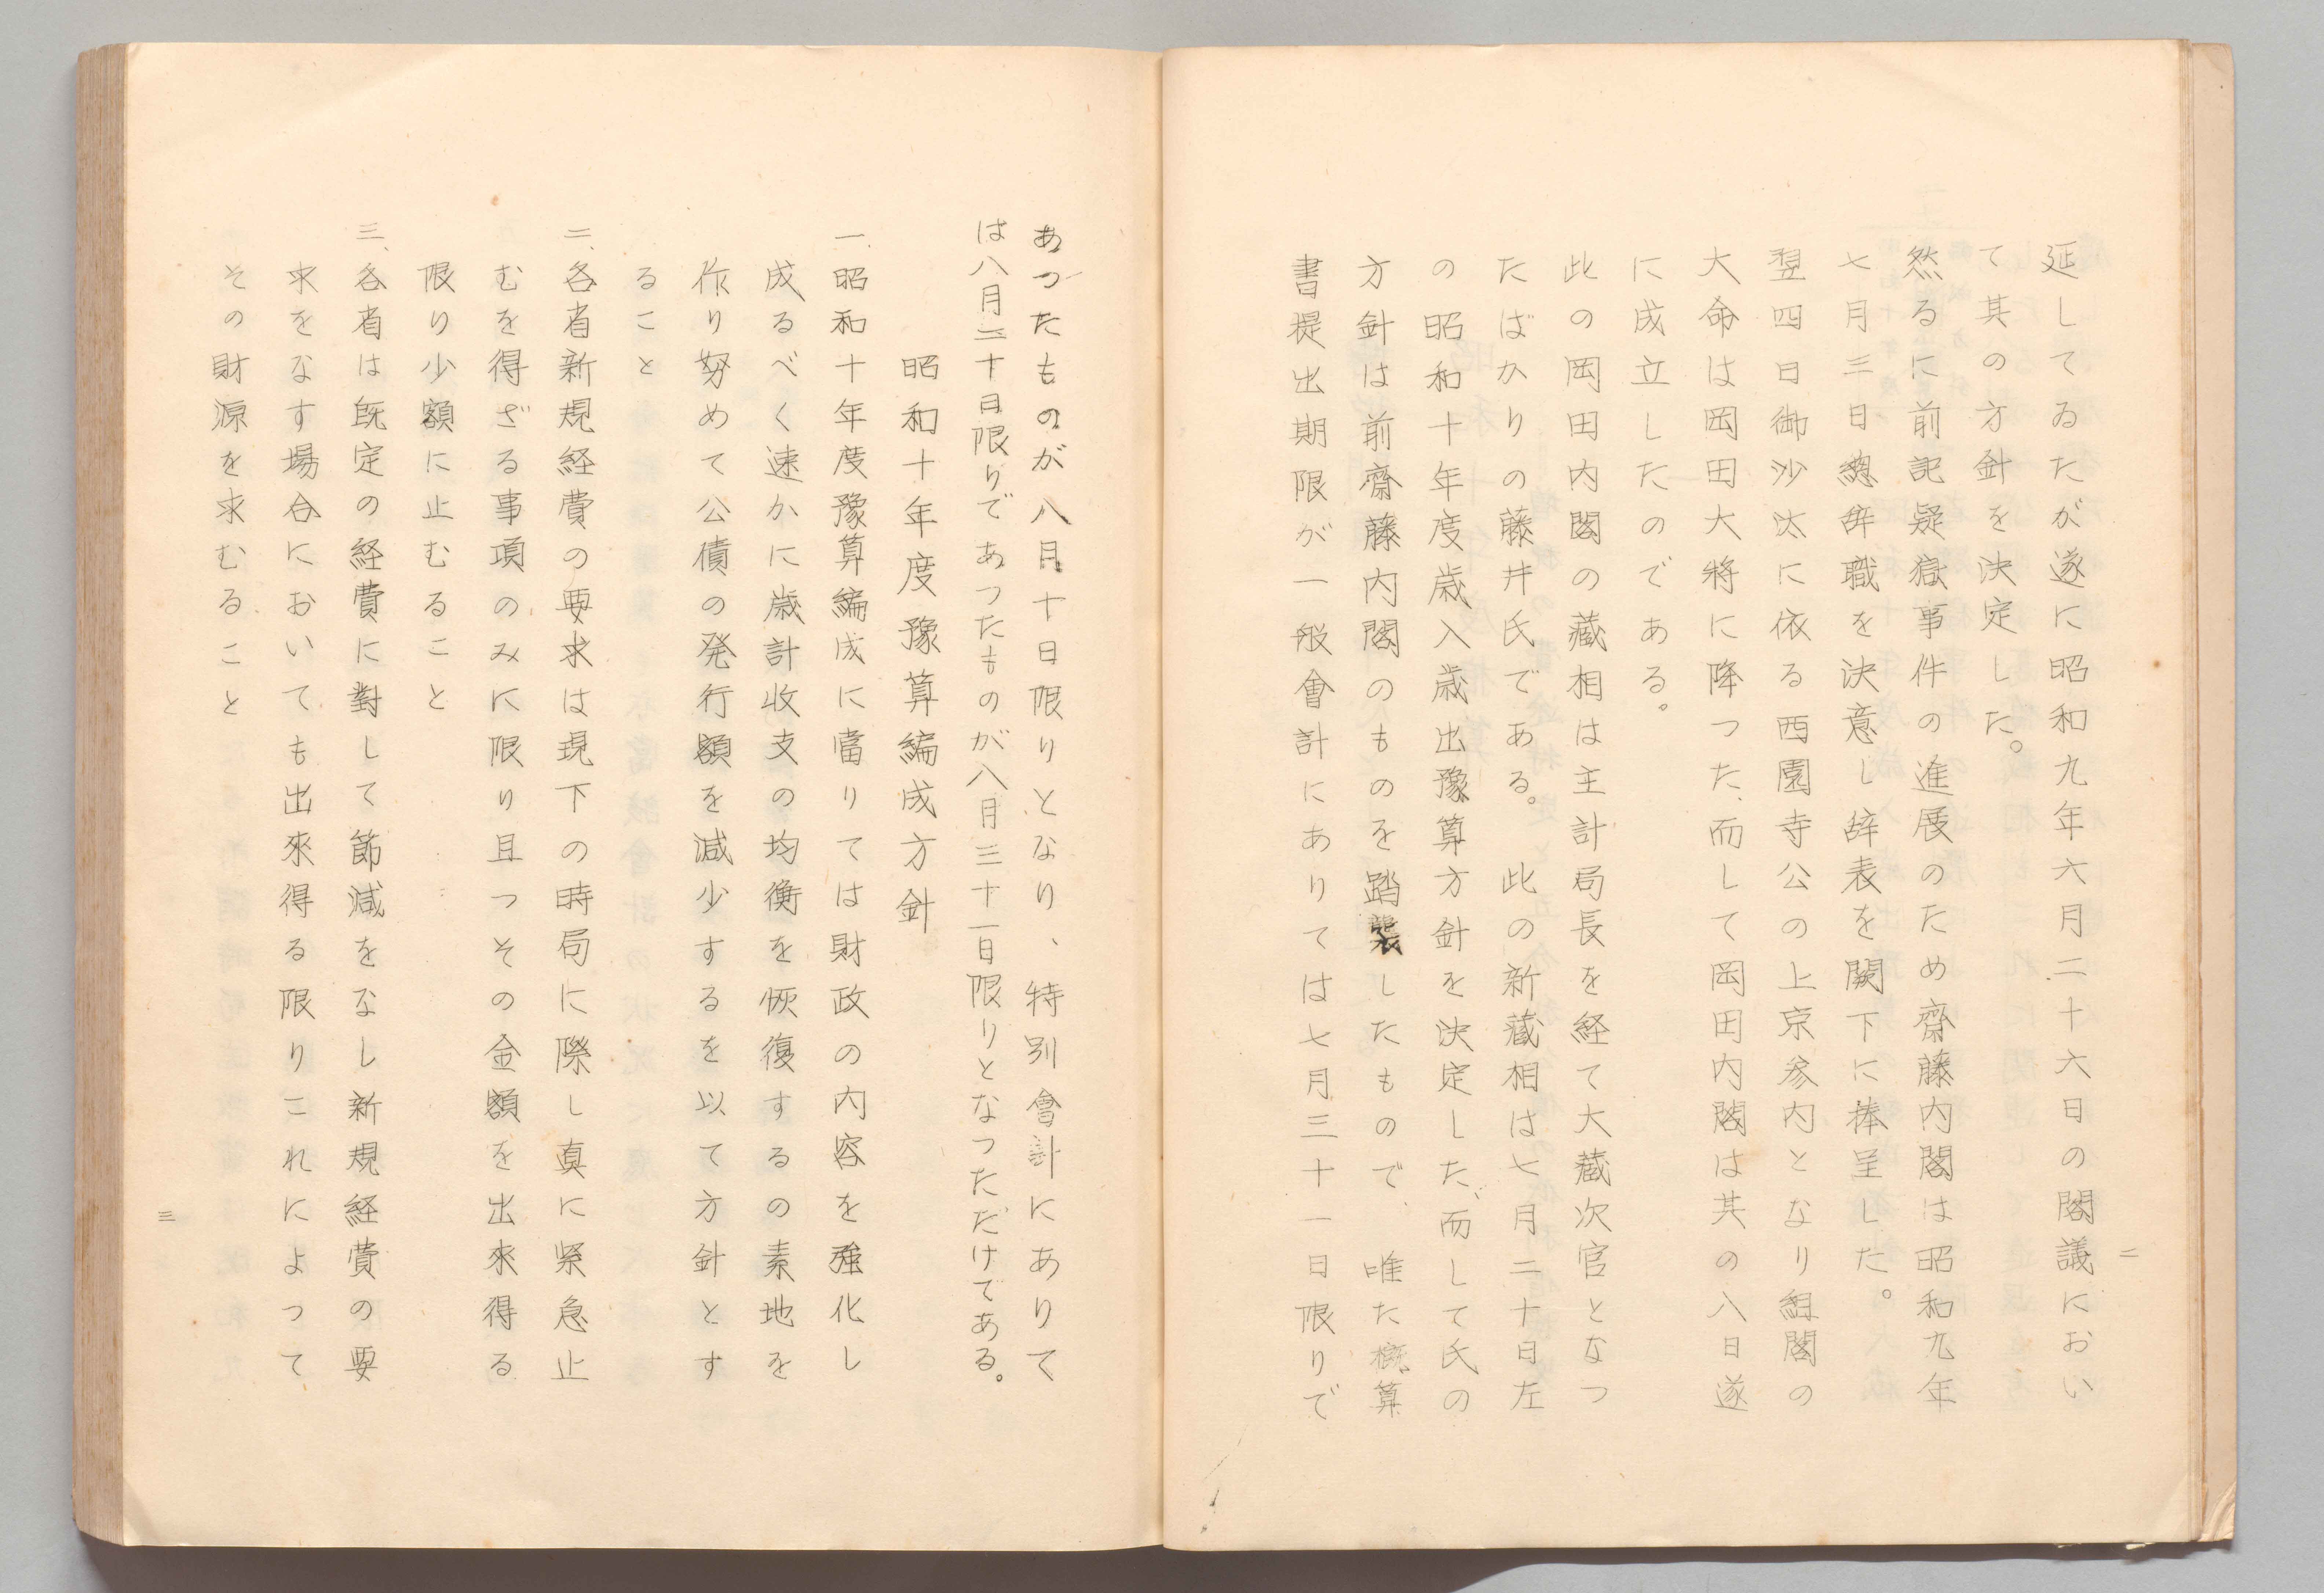 二
延してゐたが遂に昭和九年六月二十六日の閣議におい
て其の方針を決定した。
然るに前記疑獄事件の進展のため齋藤内閣は昭和九年
七月三日總辞職を決意し辞表を闕下に捧呈した。
翌四日御沙汰に依る西園寺公の上京参内となり組閣の
大命は岡田大将に降つた、而して岡田内閣は其の八日遂
に成立したのである。
此の岡田内閣の藏相は主計局長を経て大藏次官となつ
たばかりの藤井氏である。此の新藏相は七月二十日左
の昭和十年度歳入歳出豫算方針を決定した、而して氏の
方針は前齋藤内閣のものを踏襲したもので、唯た概算
書提出期限が一般會計にありては七月三十一日限りで
あつたものが八月十日限りとなり、特別會計にありて
は八月二十日限りであつたものが八月三十一日限りとなつただけである。
昭和十年度豫算編成方針
一、昭和十年度豫算編成に當りては財政の内容を強化し
成るべく速かに歳計收支の均衡を恢復するの素地を
作り努めて公債の発行額を減少するを以て方針とす
ること
二、各省新規経費の要求は現下の時局に際し真に緊急止
むを得ざる事項のみに限り且つその金額を出來得る
限り少額に止むること
三、各省は既定の経費に對して節減をなし新規経費の要
求をなす場合においても出來得る限りこれによって
その財源を求むること
三